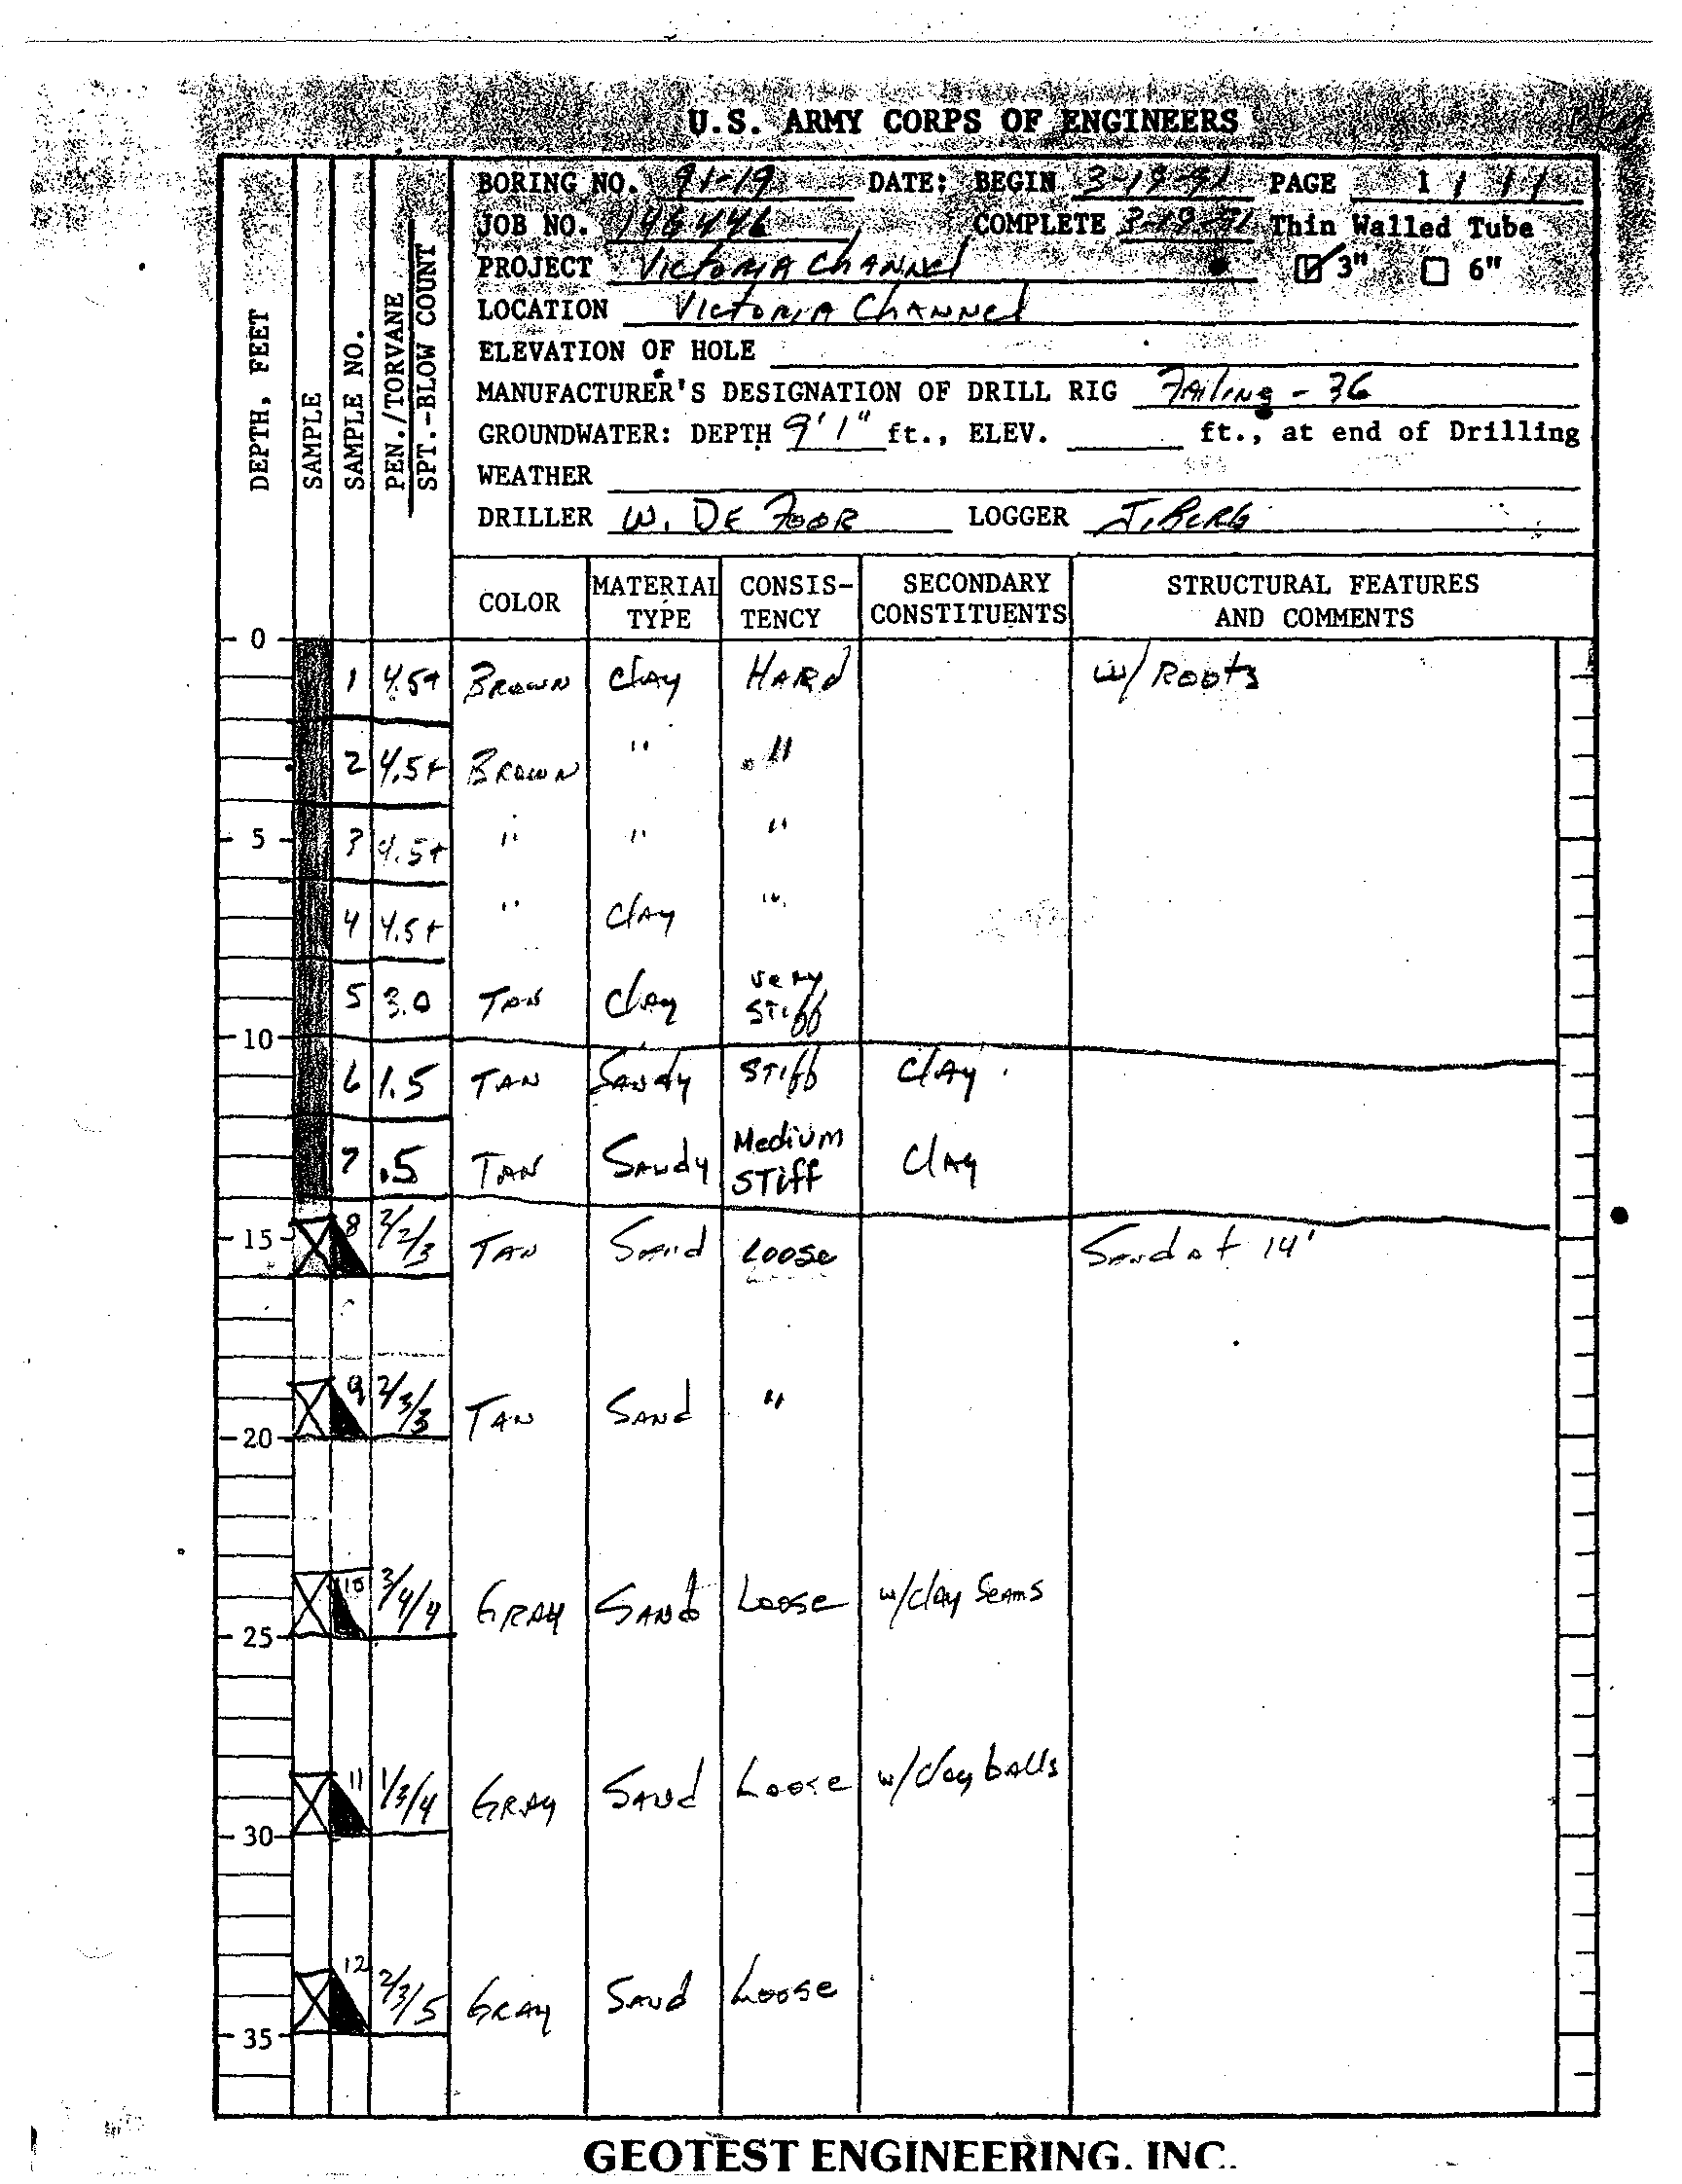 U.S. ARMY CORPS OF ENGINEERS
BORING NO. 91-19 DATE: BEGIN 3-19-91 PAGE 1 /
JOB NO. COMPLETE 3-19-91 Thin Walled Tube
PROJECT VICTORIA CHANNEL 3" 6"
LOCATION VICTORIA CHANNEL
ELEVATION OF HOLE
MANUFACTURER'S DESIGNATION OF DRILL RIG FAILING - 36
GROUNDWATER: DEPTH 9'1" ft., ELEV. ft., at end of Drilling
WEATHER
DRILLER W. DE FOOR LOGGER J. BERG
DEPTH, FEET
SAMPLE
SAMPLE NO.
PEN./TORVANE
SPT.-BLOW COUNT
COLOR MATERIAL TYPE CONSIS-TENCY SECONDARY CONSTITUENTS STRUCTURAL FEATURES AND COMMENTS
0
1 4.5+ BROWN CLAY HARD w/ ROOTS
2 4.5+ BROWN " "
5 3 4.5+ " " "
4 4.5+ " CLAY "
5 3.0 TAN Clay very STIFF
10
6 1.5 TAN SANDY STIFF CLAY
7 .5 TAN SANDY Medium STIFF CLAY
15 8 2/2/3 TAN Sand LOOSE Sand at 14'
9 2/3/3 TAN SAND "
20
10 3/4/4 GRAY SAND LOOSE w/clay SEAMS
25
11 1/3/4 GRAY SAND LOOSE w/clay balls
30
12 2/3/5 GRAY SAND LOOSE
35
GEOTEST ENGINEERING, INC.